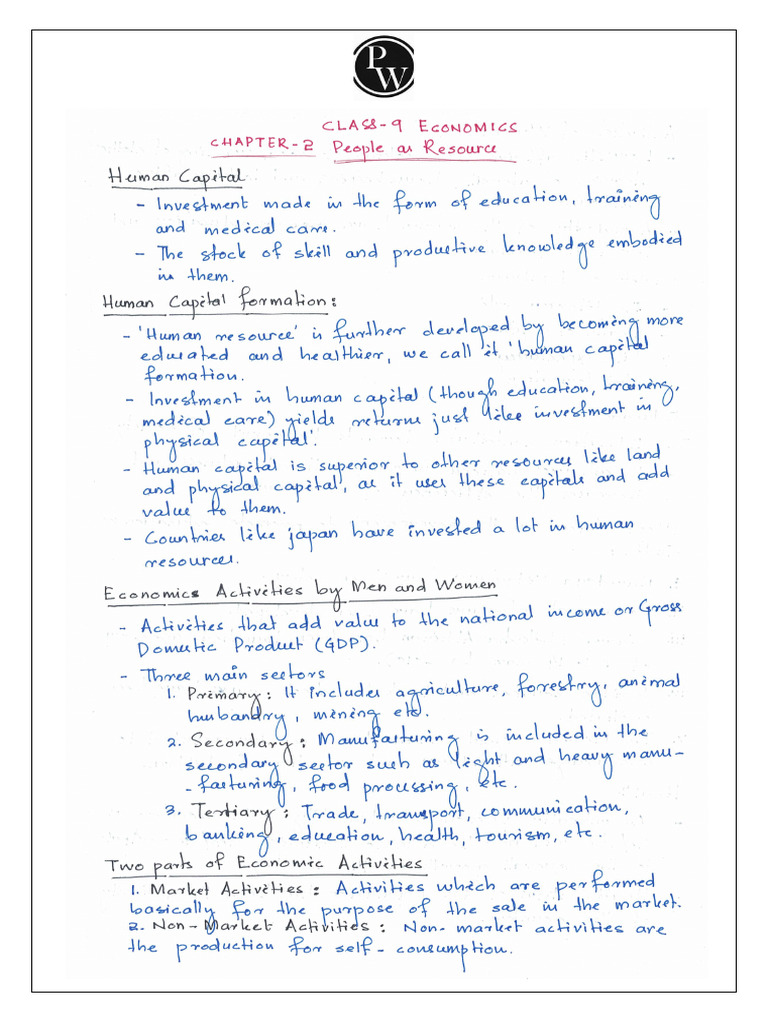 PW
CLASS-9 ECONOMICS
CHAPTER-2 People as Resource
Human Capital
- Investment made in the form of education, training
and medical care.
- The stock of skill and productive knowledge embodied
in them.
Human Capital formation:
- 'Human resource' is further developed by becoming more
educated and healthier, we call it 'human capital
formation.
- Investment in human capital (though education, training,
medical care) yields returns just like investment in
physical capital'.
- Human capital is superior to other resources like land
and physical capital, as it uses these capitals and add
value to them.
- Countries like japan have invested a lot in human
resources.
Economics Activities by Men and Women
- Activities that add value to the national income or Gross
Domestic Product (GDP).
- Three main sectors
1. Primary: It includes agriculture, forestry, animal
husbandry, mining etc.
2. Secondary: Manufacturing is included in the
secondary sector such as light and heavy manu-
-facturing, food processing, etc.
3. Tertiary: Trade, transport, communication,
banking, education, health, tourism, etc.
Two parts of Economic Activities
1. Market Activities: Activities which are performed
basically for the purpose of the sale in the market.
2. Non-Market Activities: Non-market activities are
the production for self-consumption.